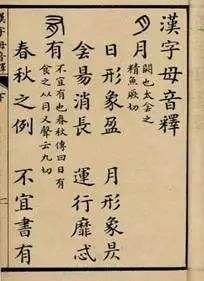 漢字母音釋
月 闕也太侌之精魚厥切
日形象盈 月形象昃
侌昜消長 運行靡忒
有 不宜有也春秋傳曰日有食之从月又聲云九切
春秋之例 不宜書有
漢字母音釋 下